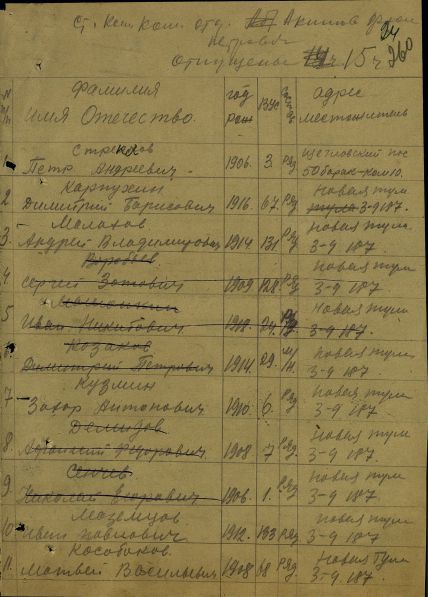 ст. Ком. Ком. отд. Акимов
Петровя
Отпущены 15 ч
34
260
№ п/п
Фамилия
Имя Отечество.
год
рож
ВУС
адрес
местожитель
1
Стрелков
Петр Андреевич
1906. 3. Ряд
Щегловский пос
50 барак-ком 10.
2
Карпухин
Димитрий Борисович
1916. 67. Ряд
Новая тул
тула 3-9 187.
3.
Малахов
Андрей Владимирович
1914 131. Ряд
Новая тул
3-9 187
4
Воробьев.
Сергей Зотович
1909 128. Ряд
Новая тул
3-9 187
5
Иван Никитович
1912. 24.
Новая тул
3-9 187.
Козаков
Димитрий Петрович
1914. 29.
Новая тул
3-9 187.
7
Кузмин
Захар Антонович
1910 6. Ряд
Новая тул
3-9 187.
8.
Демидов
Афанасий Федорович
1908. 7 Ряд.
Новая тул
3-9 187.
9
Сенчев
Николай Егорович
1906. 1. Ряд
Новая тул
3-9 187.
10
Маземцов
Иван Павлович
1912. 133 Ряд
Новая тул
3-9 187.
11.
Кособоков
Матвей Васильевич
1908 18 Ряд.
Новая Тул
3-9. 187.